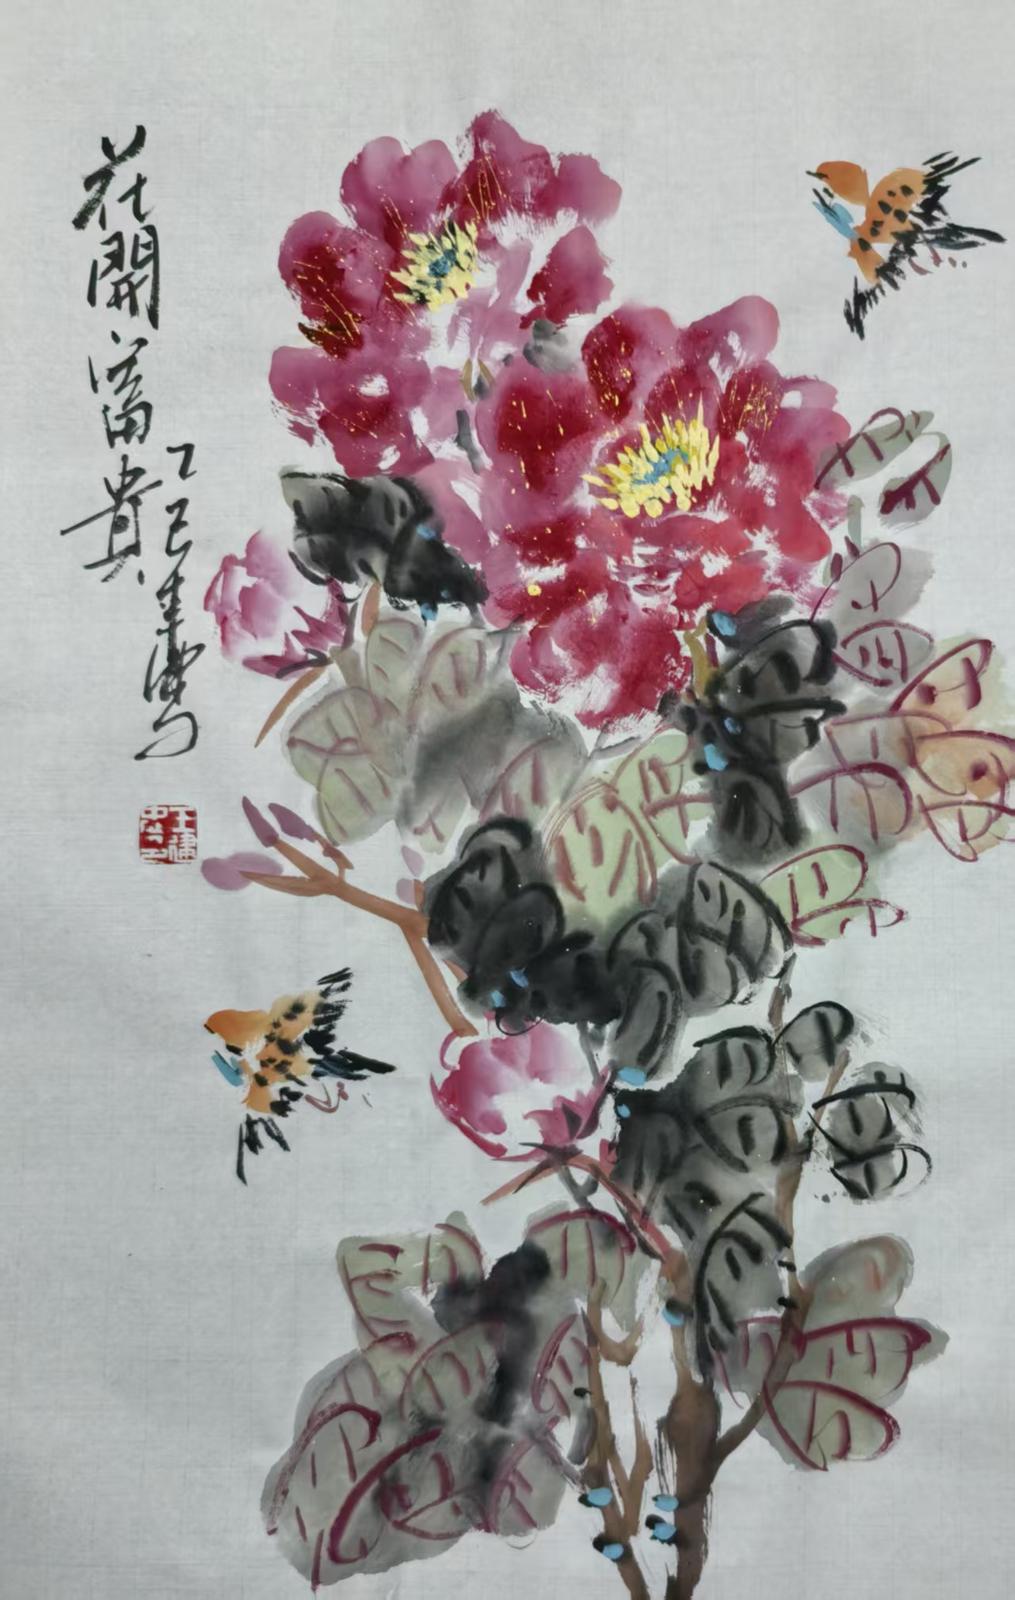 花開富貴
乙巳年
王建